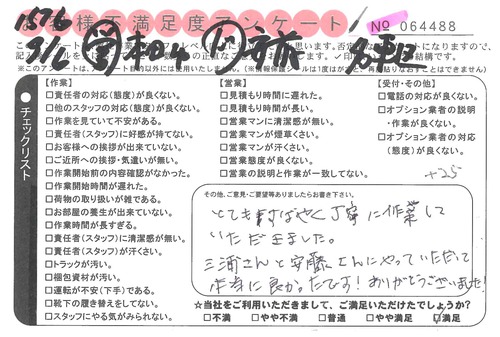 お客様不満足度アンケート
No 064488
1576
3/2
●チェックリスト
【作業】
□責任者の対応(態度)が良くない。
□他のスタッフの対応(態度)が良くない。
□作業を見ていて不安がある。
□責任者(スタッフ)に好感が持てない。
□お客様への挨拶が出来ていない。
□ご近所への挨拶・気遣いが無い。
□作業開始前の内容確認がなかった。
□作業開始時間が遅れた。
□荷物の取り扱いが雑である。
□お部屋の養生が出来ていない。
□作業時間が長すぎる。
□責任者(スタッフ)に清潔感が無い。
□責任者(スタッフ)が汗くさい。
□トラックが汚い。
□梱包資材が汚い。
□運転が不安(下手)である。
□靴下の履き替えをしてない。
□スタッフにやる気がみられない。
【営業】
□見積もり時間に遅れた。
□見積もり時間が長い。
□営業マンに清潔感が無い。
□営業マンが煙草くさい。
□営業マンが汗くさい。
□営業態度が良くない。
□営業の説明と作業が一致してない。
【受付・その他】
□電話の対応が良くない。
□オプション業者の説明
・作業が良くない。
□オプション業者の対応
(態度)が良くない。
+25
その他、ご意見・ご要望等ありましたらお書き下さい。
とてもすばやく丁寧に作業して
いただきました。
三浦さんと安藤さんにやっていただいて
本当に良かったです!ありがとうございました!
☆当社をご利用いただきまして、ご満足いただけたでしょうか?
□不満 □やや不満 □普通 □やや満足 □満足